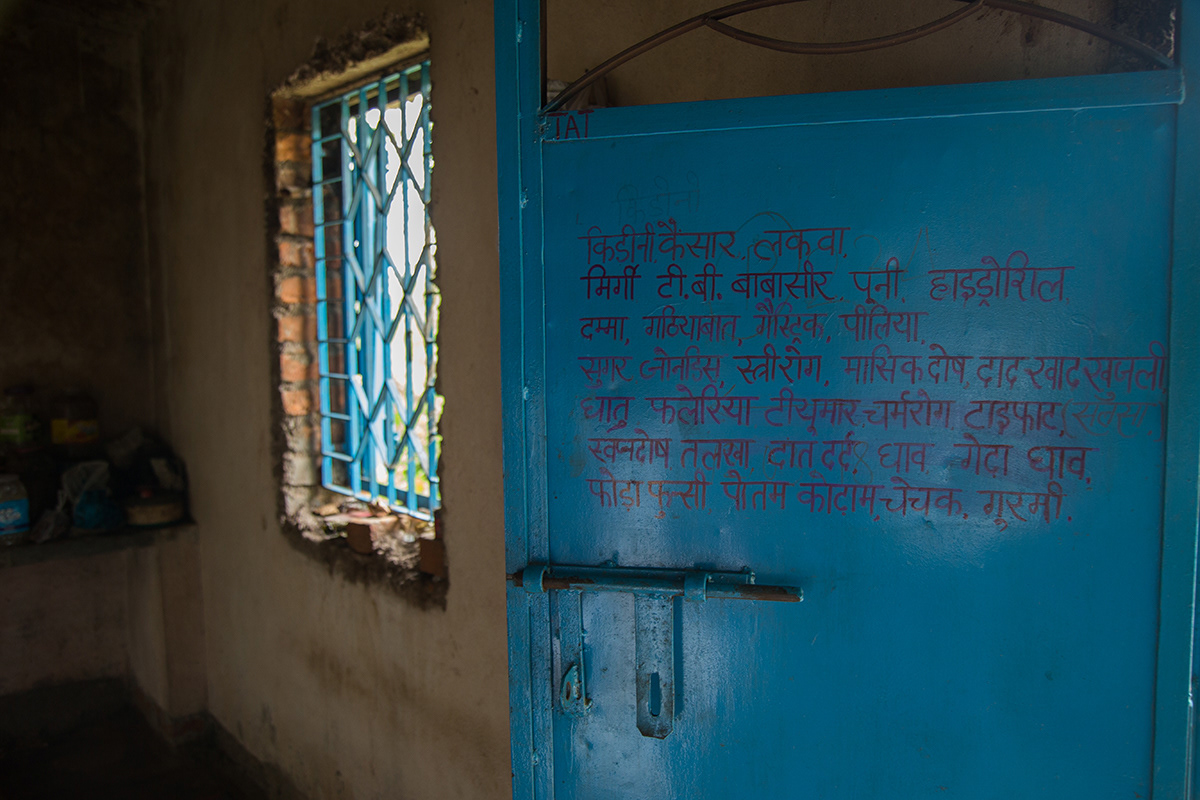 TAT
किडीनी
किडीनी, कैंसार, लकवा,
मिर्गी टी.बी. बाबासीर, पूनी, हाइड्रोशिल,
दम्मा, गठियाबात, गैस्ट्रिक, पीलिया,
सुगर जोनडिस, स्त्री रोग, मासिक दोष दाद खाद खुजली,
धातु फलेरिया टीयूमार चर्मरोग टाइफाट,
स्वप्नदोष तलखा, दात दर्द, धाव गेदा धाव,
फोड़ा फुन्सी, पोतम कोढ़ाम, चेचक, गुरमी.